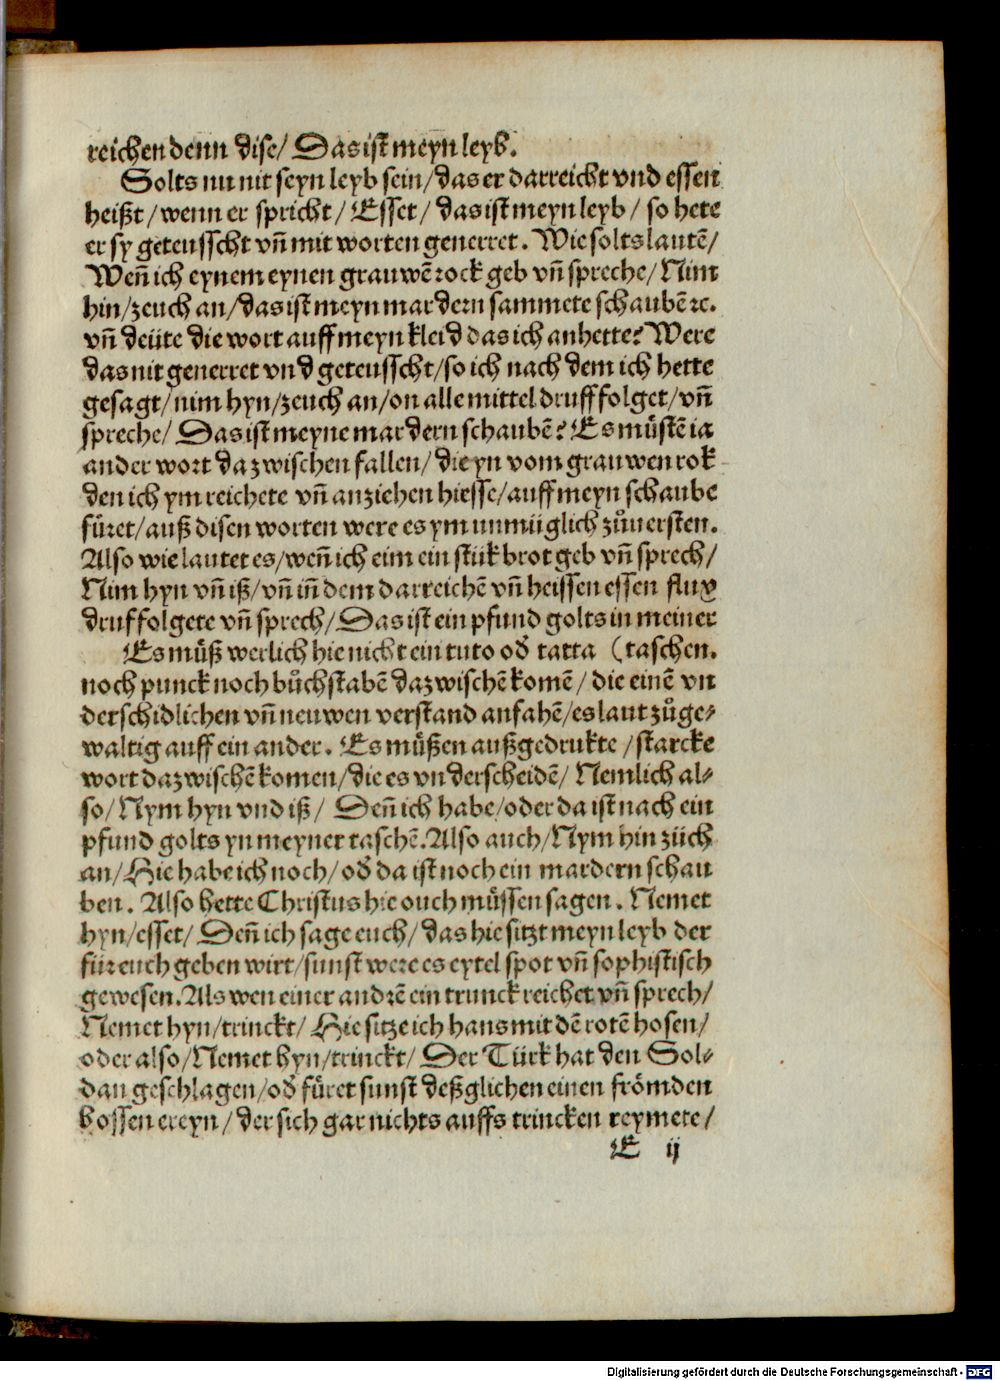 reichen denn dise/ Das ist meyn leyb.
Solts nu nit seyn leyb sein/das er darreicht vnd essen
heißt/wenn er spricht/Esset/das ist meyn leyb/so hete
er sy geteusscht vñ mit worten generret. Wie solts lautẽ/
Weñ ich eynem eynen grauwẽ rock geb vñ spreche/Nim
hin/zeuch an/das ist meyn mardern sammete schaubẽ ꝛc.
vñ deüte die wort auff meyn kleid das ich anhette? Were
das nit generret vnd geteusscht/so ich nach dem ich hette
gesagt/nim hyn/zeuch an/on alle mittel druff folget/vñ
spreche/ Das ist meyne mardern schaubẽ? Es müstẽ ia
ander wort dazwischen fallen/die yn vom grauwen rok
den ich ym reichete vñ anziehen hiesse/auff meyn schaube
füret/auß disen worten were es ym unmüglich zůuersten.
Also wie lautet es/weñ ich eim ein stük brot geb vñ sprech/
Nim hyn vñ iß/vñ iñ dem darreichẽ vñ heissen essen flux
druff folgete vñ sprech/Das ist ein pfund golts in meiner
Es můß werlich hie nicht ein tuto od̕ tatta (taschen.
noch punck noch bůchstabẽ dazwischẽ komẽ/die einẽ vn
derschidlichen vñ neuwen verstand anfahẽ/es laut zůge⸗
waltig auff ein ander. Es můßen außgedrukte/starcke
wort dazwischẽ komen/die es vnderscheidẽ/Nemlich al⸗
so/Nym hyn vnd iß/ Deñ ich habe/oder da ist nach ein
pfund golts yn meyner taschẽ. Also auch/Nym hin züch
an/Hie habe ich noch/od̕ da ist noch ein mardern schau
ben. Also hette Christus hie ouch müssen sagen. Nemet
hyn/esset/ Deñ ich sage euch/das hie sitzt meyn leyb der
für euch geben wirt/sunst were es eytel spot vñ sophistisch
gewesen. Als wen einer andrẽ ein trunck reichet vñ sprech/
Nemet hyn/trinckt/Hie sitze ich hans mit dẽ rotẽ hosen/
oder also/Nemet hyn/trinckt/ Der Türk hat den Sol⸗
dan geschlagen/od̕ füret sunst deßglichen einen frömden
bossen ereyn/der sich gar nichts auffs trincken reymete/
E ij
Digitalisierung gefördert durch die Deutsche Forschungsgemeinschaft - DFG